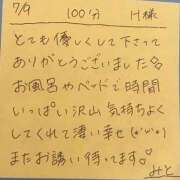 7/9 100分 H様
とても優しくして下さって
ありがとうございました
お風呂やベッドで時間
いっぱい沢山気持ちよく
してくれて凄い幸せ(*´ω`*)
またお誘い待ってます♡
みと